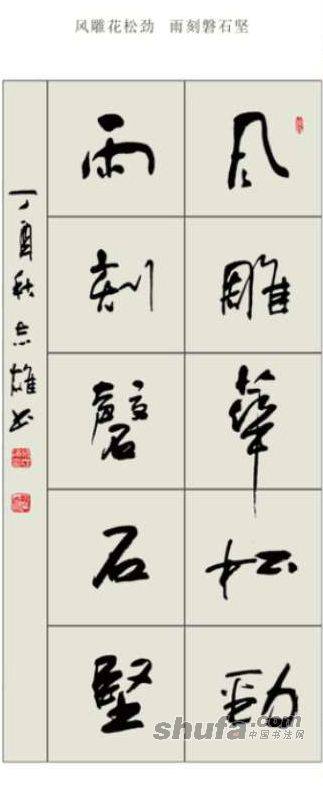 风雕花松劲 雨刻磐石坚
风雕華松劲
雨刻磬石堅
丁酉秋志雄书
shufa.com
中国书法网